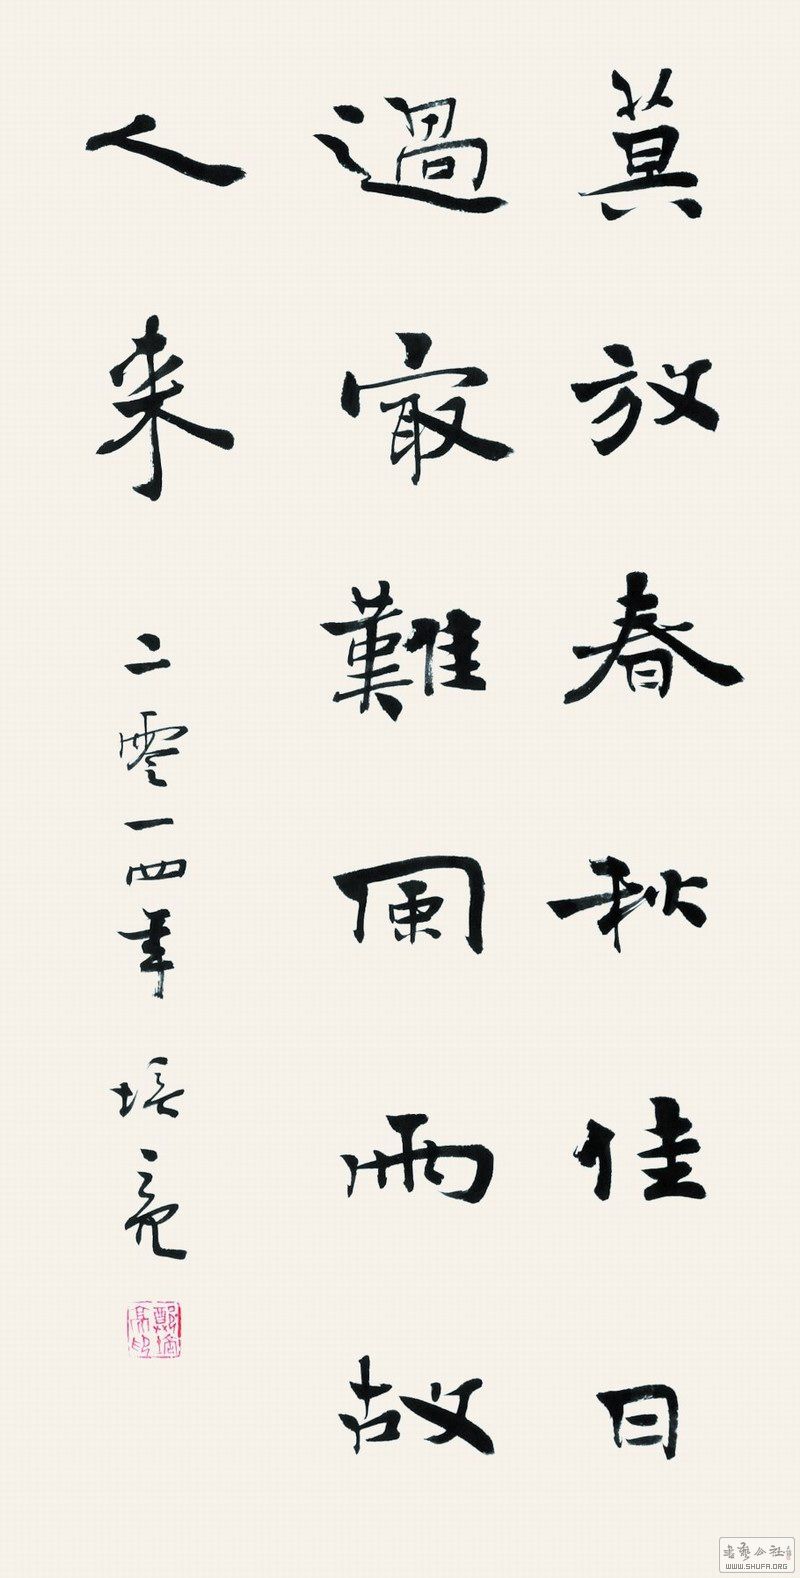 莫放春秋佳日
過最難風雨故
人来
二零一四年 培亮
WWW.SHUFA.ORG